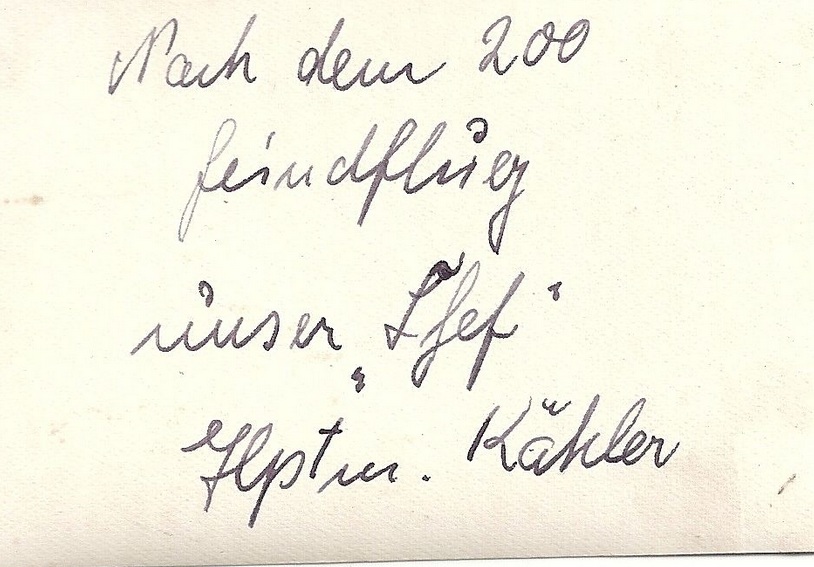 Nach dem 200
Feindflug
unser „Chef"
Hptm. Kähler